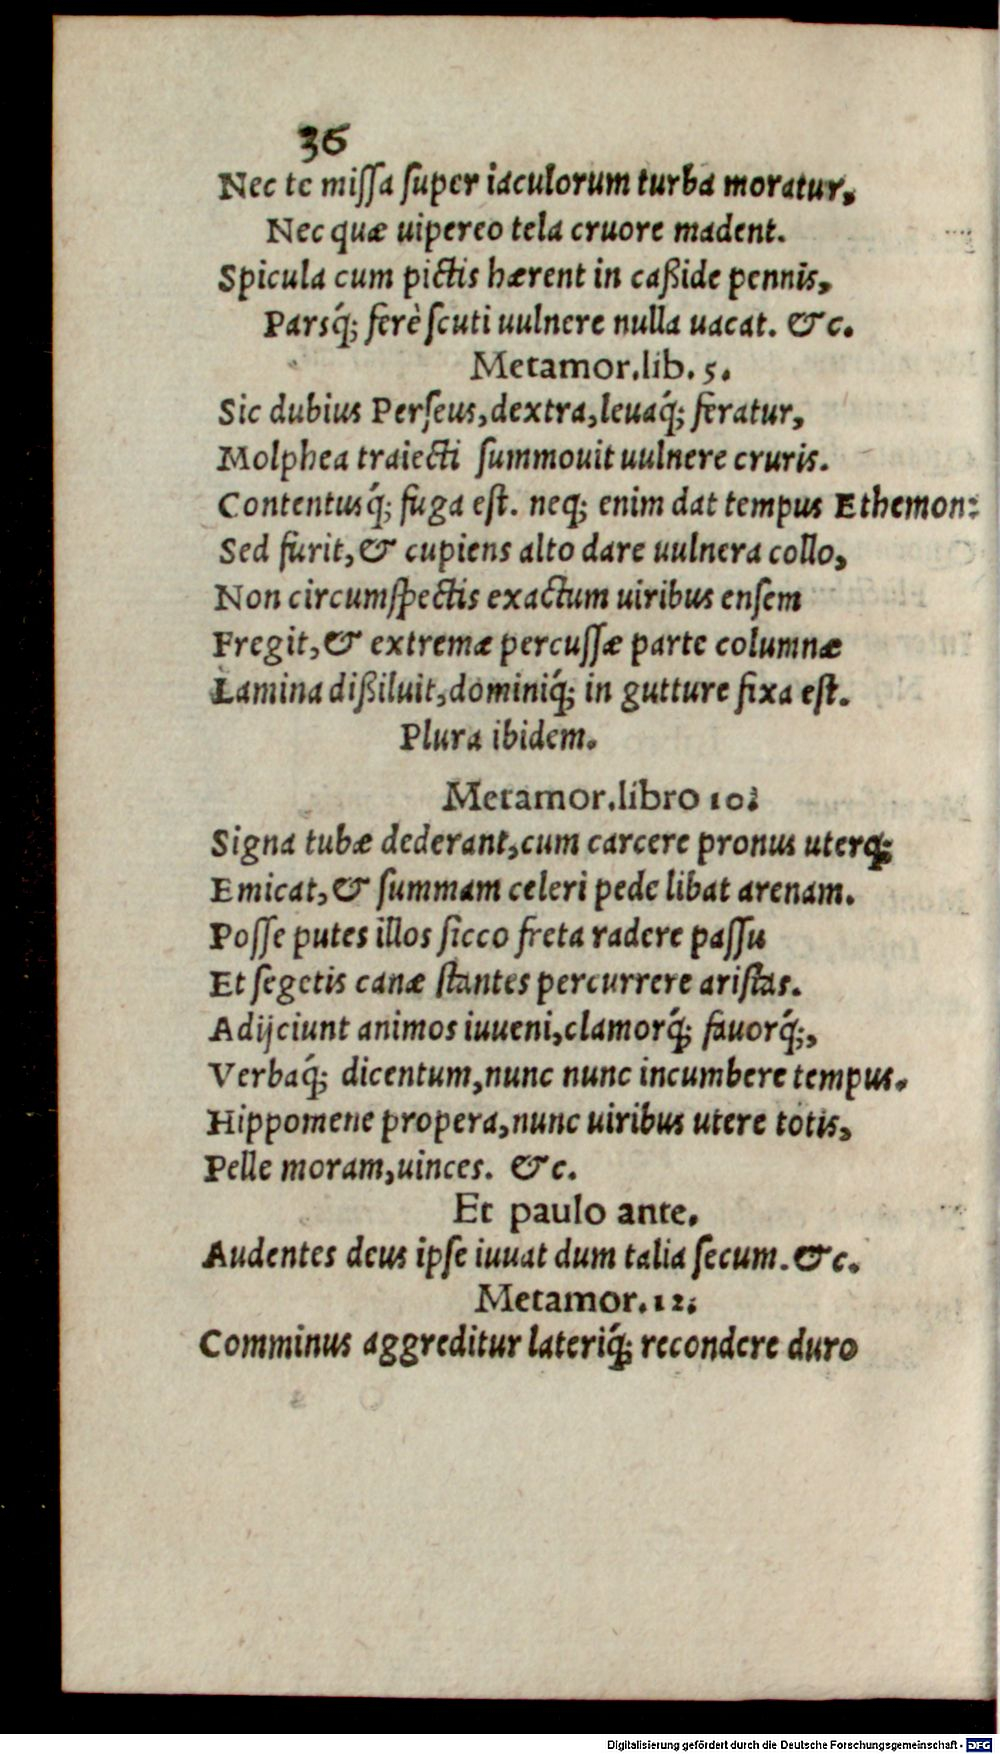 36
Nec te miſſa ſuper iaculorum turba moratur,
Nec quæ uipereo tela cruore madent.
Spicula cum pictis hærent in caßide pennis,
Parsq́; ferè ſcuti uulnere nulla uacat. &c.
Metamor.lib. 5.
Sic dubius Perſeus,dextra,leuaq́; feratur,
Molphea traiecti ſummouit uulnere cruris.
Contentusq́; fuga eſt. neq; enim dat tempus Ethemon:
Sed furit,& cupiens alto dare uulnera collo,
Non circumſpectis exactum uiribus enſem
Fregit,& extremæ percuſſæ parte columnæ
Lamina dißiluit,dominiq́; in gutture fixa eſt.
Plura ibidem.
Metamor.libro 10:
Signa tubæ dederant,cum carcere pronus uterq;
Emicat,& ſummam celeri pede libat arenam.
Poſſe putes illos ſicco freta radere paſſu
Et ſegetis canæ ſtantes percurrere ariſtas.
Adijciunt animos iuueni,clamorq́; fauorq́;,
Verbaq́; dicentum,nunc nunc incumbere tempus.
Hippomene propera,nunc uiribus utere totis,
Pelle moram,uinces. &c.
Et paulo ante.
Audentes deus ipſe iuuat dum talia ſecum.&c.
Metamor.12:
Comminus aggreditur lateriq́; recondere duro
Digitalisierung gefördert durch die Deutsche Forschungsgemeinschaft - DFG